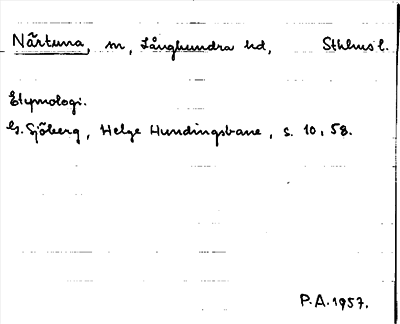 Närtuna, m, Långhundra hd, Sthlms l.
Etymologi.
G. Sjöberg, Helge Hundingsbane, s. 10, 58.
P.A. 1957.